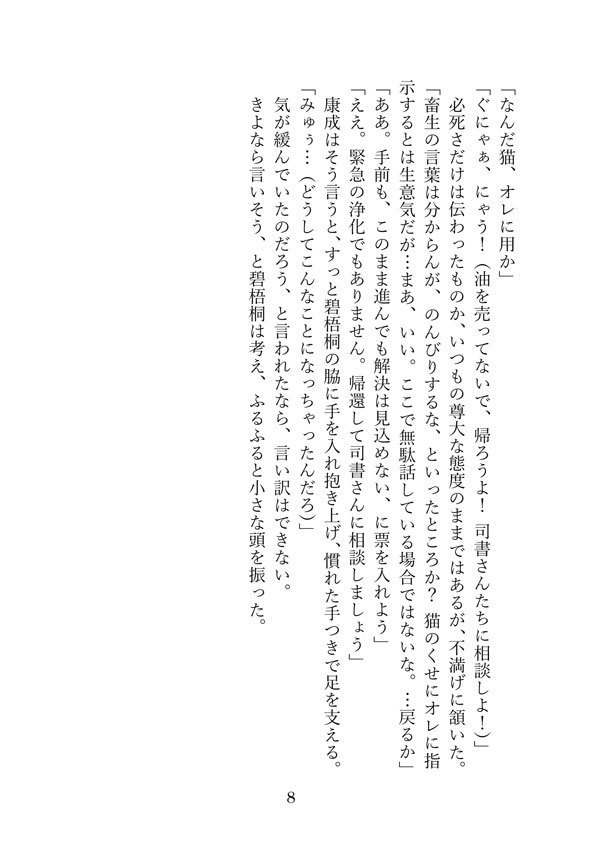 「なんだ猫、オレに用か」
「ぐにゃぁ、にゃう！（油を売ってないで、帰ろうよ！ 司書さんたちに相談しよ！）」
必死さだけは伝わったものか、いつもの尊大な態度のままではあるが、不満げに頷いた。
「畜生の言葉は分からんが、のんびりするな、といったところか？ 猫のくせにオレに指
示するとは生意気だが…まあ、いい。ここで無駄話している場合ではないな。…戻るか」
「ああ。手前も、このまま進んでも解決は見込めない、に票を入れよう」
「ええ。緊急の浄化でもありません。帰還して司書さんに相談しましょう」
康成はそう言うと、すっと碧梧桐の脇に手を入れ抱き上げ、慣れた手つきで足を支える。
「みゅぅ…（どうしてこんなことになっちゃったんだろ）」
気が緩んでいたのだろう、と言われたなら、言い訳はできない。
きよなら言いそう、と碧梧桐は考え、ふるふると小さな頭を振った。
8